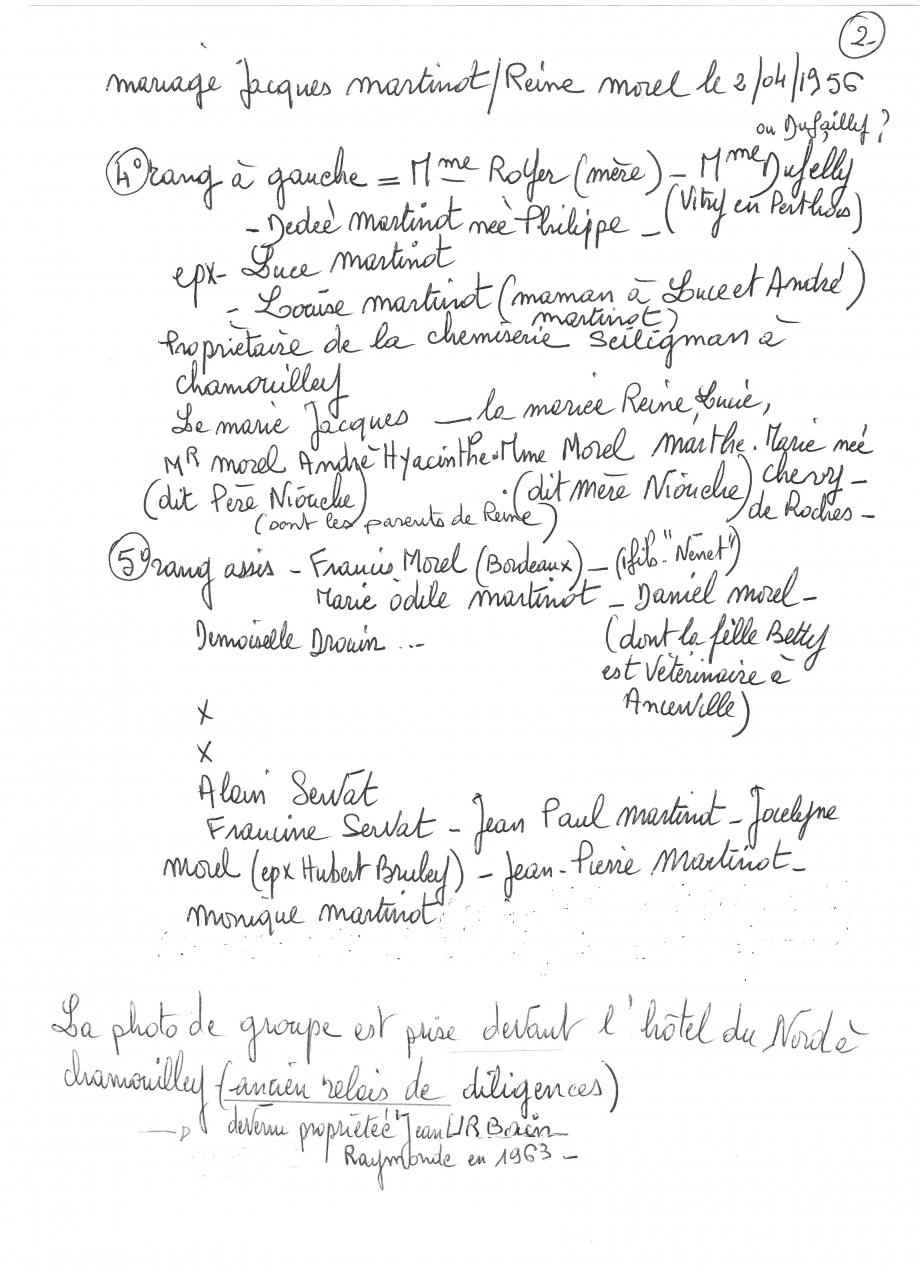 2
mariage Jacques martinot/Reine morel le 2/04/1956
ou Dufailly?
4° rang à gauche = Mme Royer (mère) - Mme Dufelly
- Dedeè martinot neè Philippe - (Vitry en Perthois)
epx - Luce martinot
- Louise martinot (maman à Luce et André)
martinot)
Propriètaire de la chemiserie Seiligman à
chamouilley
Le marié Jacques - la mariée Reine, Lucie,
MR morel André Hyacinthe. Mme Morel marthe. Marie neé
(dit Père Niouche) (dit mère Niouche) chevry -
(sont les parents de Reine) de Roches -
5° rang assis - Francis Morel (Bordeaux) - (fils "Nénet")
Marie odile martinot - Daniel morel -
Demoiselle Drouin ... (dont la fille Betty
est Vétérinaire à
Ancerville)
x
x
Alain Servat
Francine Servat - Jean Paul martinot - Jocelyne
morel (epx Hubert Bruley) - Jean-Pierre Martinot -
monique martinot
La photo de groupe est prise devant l'hôtel du Nord à
chamouilley (ancien relais de diligences)
devenu propriétée Jean URBain
Raymonde en 1963 -